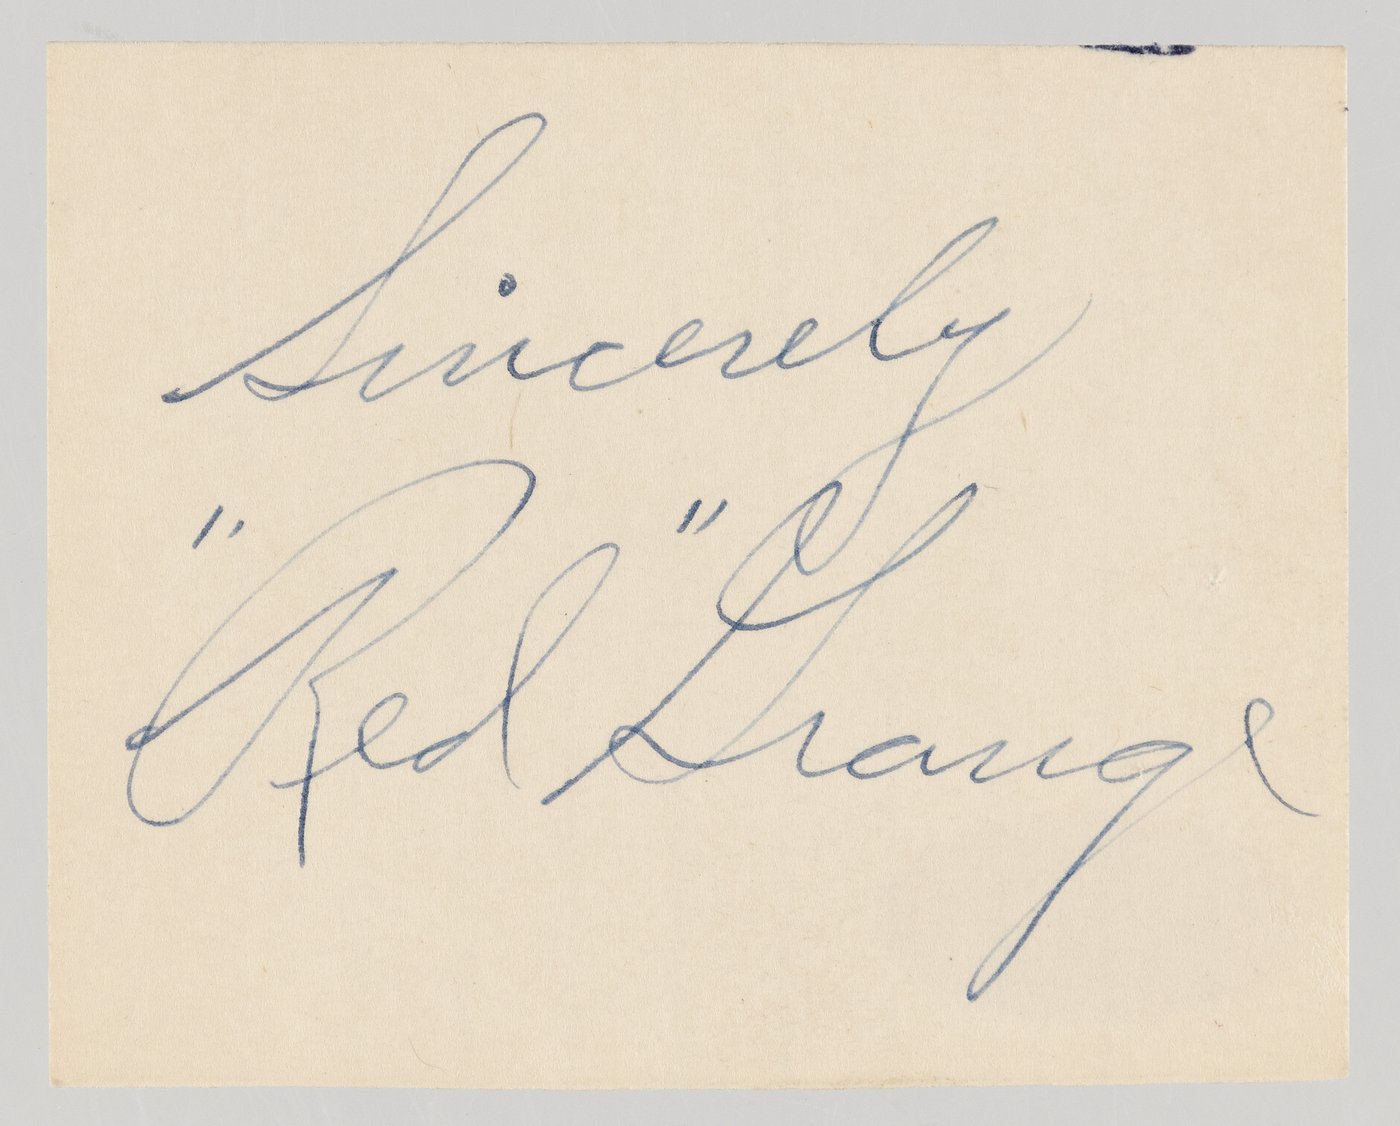 Sincerely
"Red" Grange